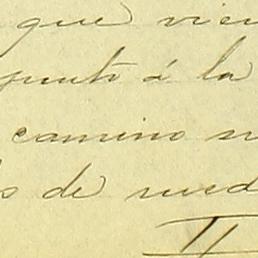 que vien
punto á la
camino n
s de rued
II